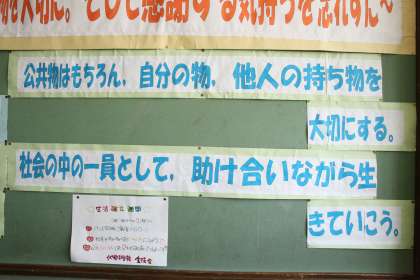 物大切に。そして感謝する気持ちを忘れずに〜
公共物はもちろん，自分の物，他人の持ち物を
大切にする。
社会の中の一員として，助け合いながら生
きていこう。